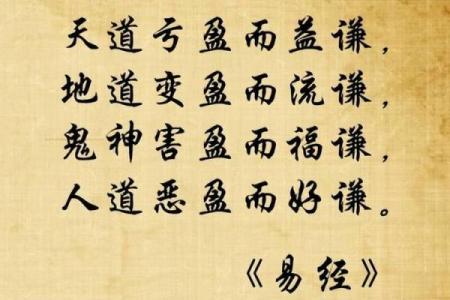 天道亏盈而益谦，
地道变盈而流谦，
鬼神害盈而福谦，
人道恶盈而好谦。
《易经》